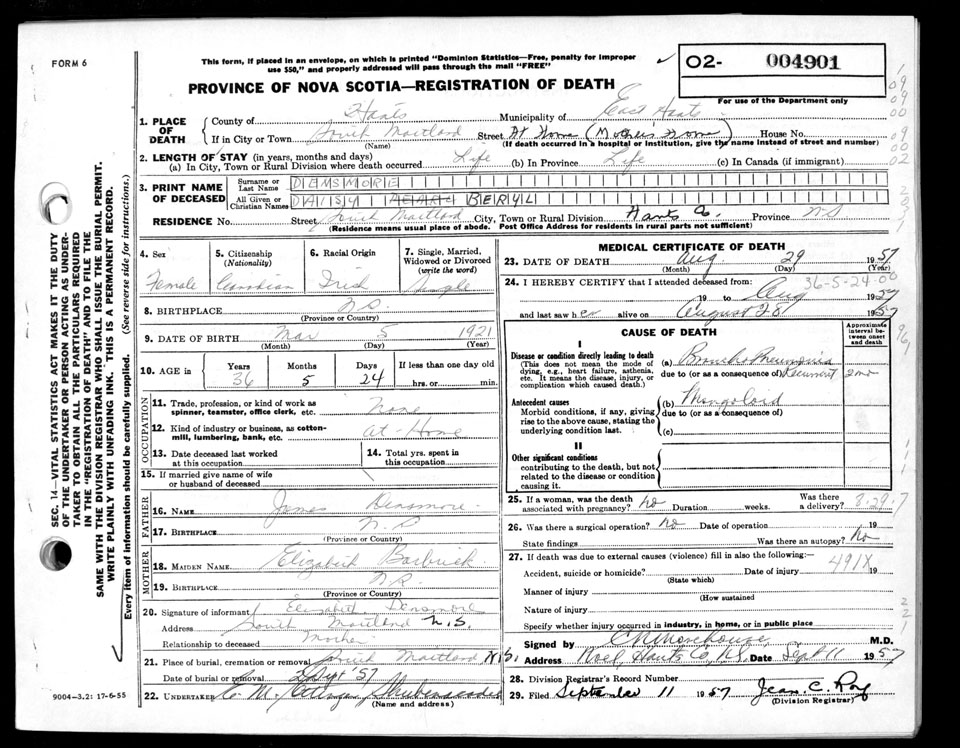 FORM 6
This form, if placed in an envelope, on which is printed "Dominion Statistics—Free, penalty for improper
use $50," and properly addressed will pass through the mail "FREE"
PROVINCE OF NOVA SCOTIA—REGISTRATION OF DEATH
O2- 004901
For use of the Department only
1. PLACE OF DEATH
County of Hants Municipality of East Hants
If in City or Town South Maitland Street At Home (Mother's Home) House No.
(Name) (If death occurred in a hospital or institution, give the name instead of street and number)
2. LENGTH OF STAY (in years, months and days)
(a) In City, Town or Rural Division where death occurred Life (b) In Province Life (c) In Canada (if immigrant)
3. PRINT NAME OF DECEASED
Surname or Last Name DENSMORE
All Given or Christian Names DAISY BERYL
RESIDENCE No. Street South Maitland City, Town or Rural Division Hants Co. Province N.S
(Residence means usual place of abode. Post Office Address for residents in rural parts not sufficient)
4. Sex Female
5. Citizenship (Nationality) Canadian
6. Racial Origin Irish
7. Single, Married, Widowed or Divorced (write the word) Single
8. BIRTHPLACE N.S.
(Province or Country)
9. DATE OF BIRTH Mar 5 1921
(Month) (Day) (Year)
10. AGE in Years 36 Months 5 Days 24 If less than one day old hrs. or min.
OCCUPATION
11. Trade, profession, or kind of work as spinner, teamster, office clerk, etc. None
12. Kind of industry or business, as cotton-mill, lumbering, bank, etc. At-Home
13. Date deceased last worked at this occupation
14. Total yrs. spent in this occupation
15. If married give name of wife or husband of deceased
FATHER
16. NAME James Densmore
17. BIRTHPLACE N.S
(Province or Country)
MOTHER
18. MAIDEN NAME Elizabeth Barbrick
19. BIRTHPLACE N.S.
(Province or Country)
20. Signature of informant Elizabeth Densmore
Address South Maitland N.S.
Relationship to deceased Mother
21. Place of burial, cremation or removal South Maitland N.S.
Date of burial or removal 2 Sept '57
22. UNDERTAKER Shubenacadie
(Name and address)
MEDICAL CERTIFICATE OF DEATH
23. DATE OF DEATH Aug 29 1957
(Month) (Day) (Year)
36-5-24-00
24. I HEREBY CERTIFY that I attended deceased from:
19 to Aug 1957
and last saw her alive on August 28 1957
CAUSE OF DEATH
Approximate interval between onset and death
I
Disease or condition directly leading to death
(This does not mean the mode of dying, e.g., heart failure, asthenia, etc. It means the disease, injury, or complication which caused death.)
(a) Broncho Pneumonia
due to (or as a consequence of) Recurrent 2 mo
Antecedent causes
Morbid conditions, if any, giving rise to the above cause, stating the underlying condition last.
(b) Mongoloid
due to (or as a consequence of)
(c)
II
Other significant conditions
contributing to the death, but not related to the disease or condition causing it.
25. If a woman, was the death associated with pregnancy? No Duration weeks. Was there a delivery?
26. Was there a surgical operation? No Date of operation 19
State findings Was there an autopsy? No
27. If death was due to external causes (violence) fill in also the following:—
Accident, suicide or homicide? Date of injury 19
(State which)
491X
Manner of injury
(How sustained
Nature of injury
Specify whether injury occurred in industry, in home, or in public place
Signed by M.D.
Address Noel, Hants Co, N.S. Date Sept 11 1957
28. Division Registrar's Record Number
29. Filed September 11 1957 Jean C. Roy
(Division Registrar)
SEC. 14—VITAL STATISTICS ACT MAKES IT THE DUTY
OF THE UNDERTAKER OR PERSON ACTING AS UNDER-
TAKER TO OBTAIN ALL THE PARTICULARS REQUIRED
IN THE "REGISTRATION OF DEATH" AND TO FILE THE
SAME WITH THE DIVISION REGISTRAR WHO SHALL ISSUE THE BURIAL PERMIT.
WRITE PLAINLY WITH UNFADING INK. THIS IS A PERMANENT RECORD.
Every item of information should be carefully supplied. (See reverse side for instructions.)
9004—3.2: 17-6-55